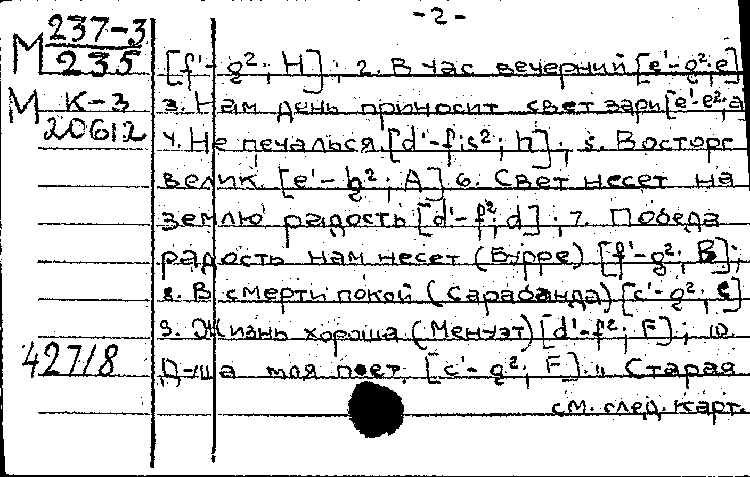 -2-
М 237-3
235
[f'-g²; H]; 2. В час вечерний [e'-g²; e]
М К-3
20612
3. Нам день приносит свет зари [e'-e²; a
4. Не печалься [d'-fis²; h]; 5. Восторг
велик [e'-g²; A] 6. Свет несет на
землю радость [d'-f²; d]; 7. Победа
радость нам несет (Бурре) [f'-g²; B];
8. В смерти покой (Сарабанда) [c'-g²; c]
9. Жизнь хороша (Менуэт) [d'-f²; F]; 10.
42718
Душа моя поет. [c'-g²; F]. 11 Старая
см. след. карт.